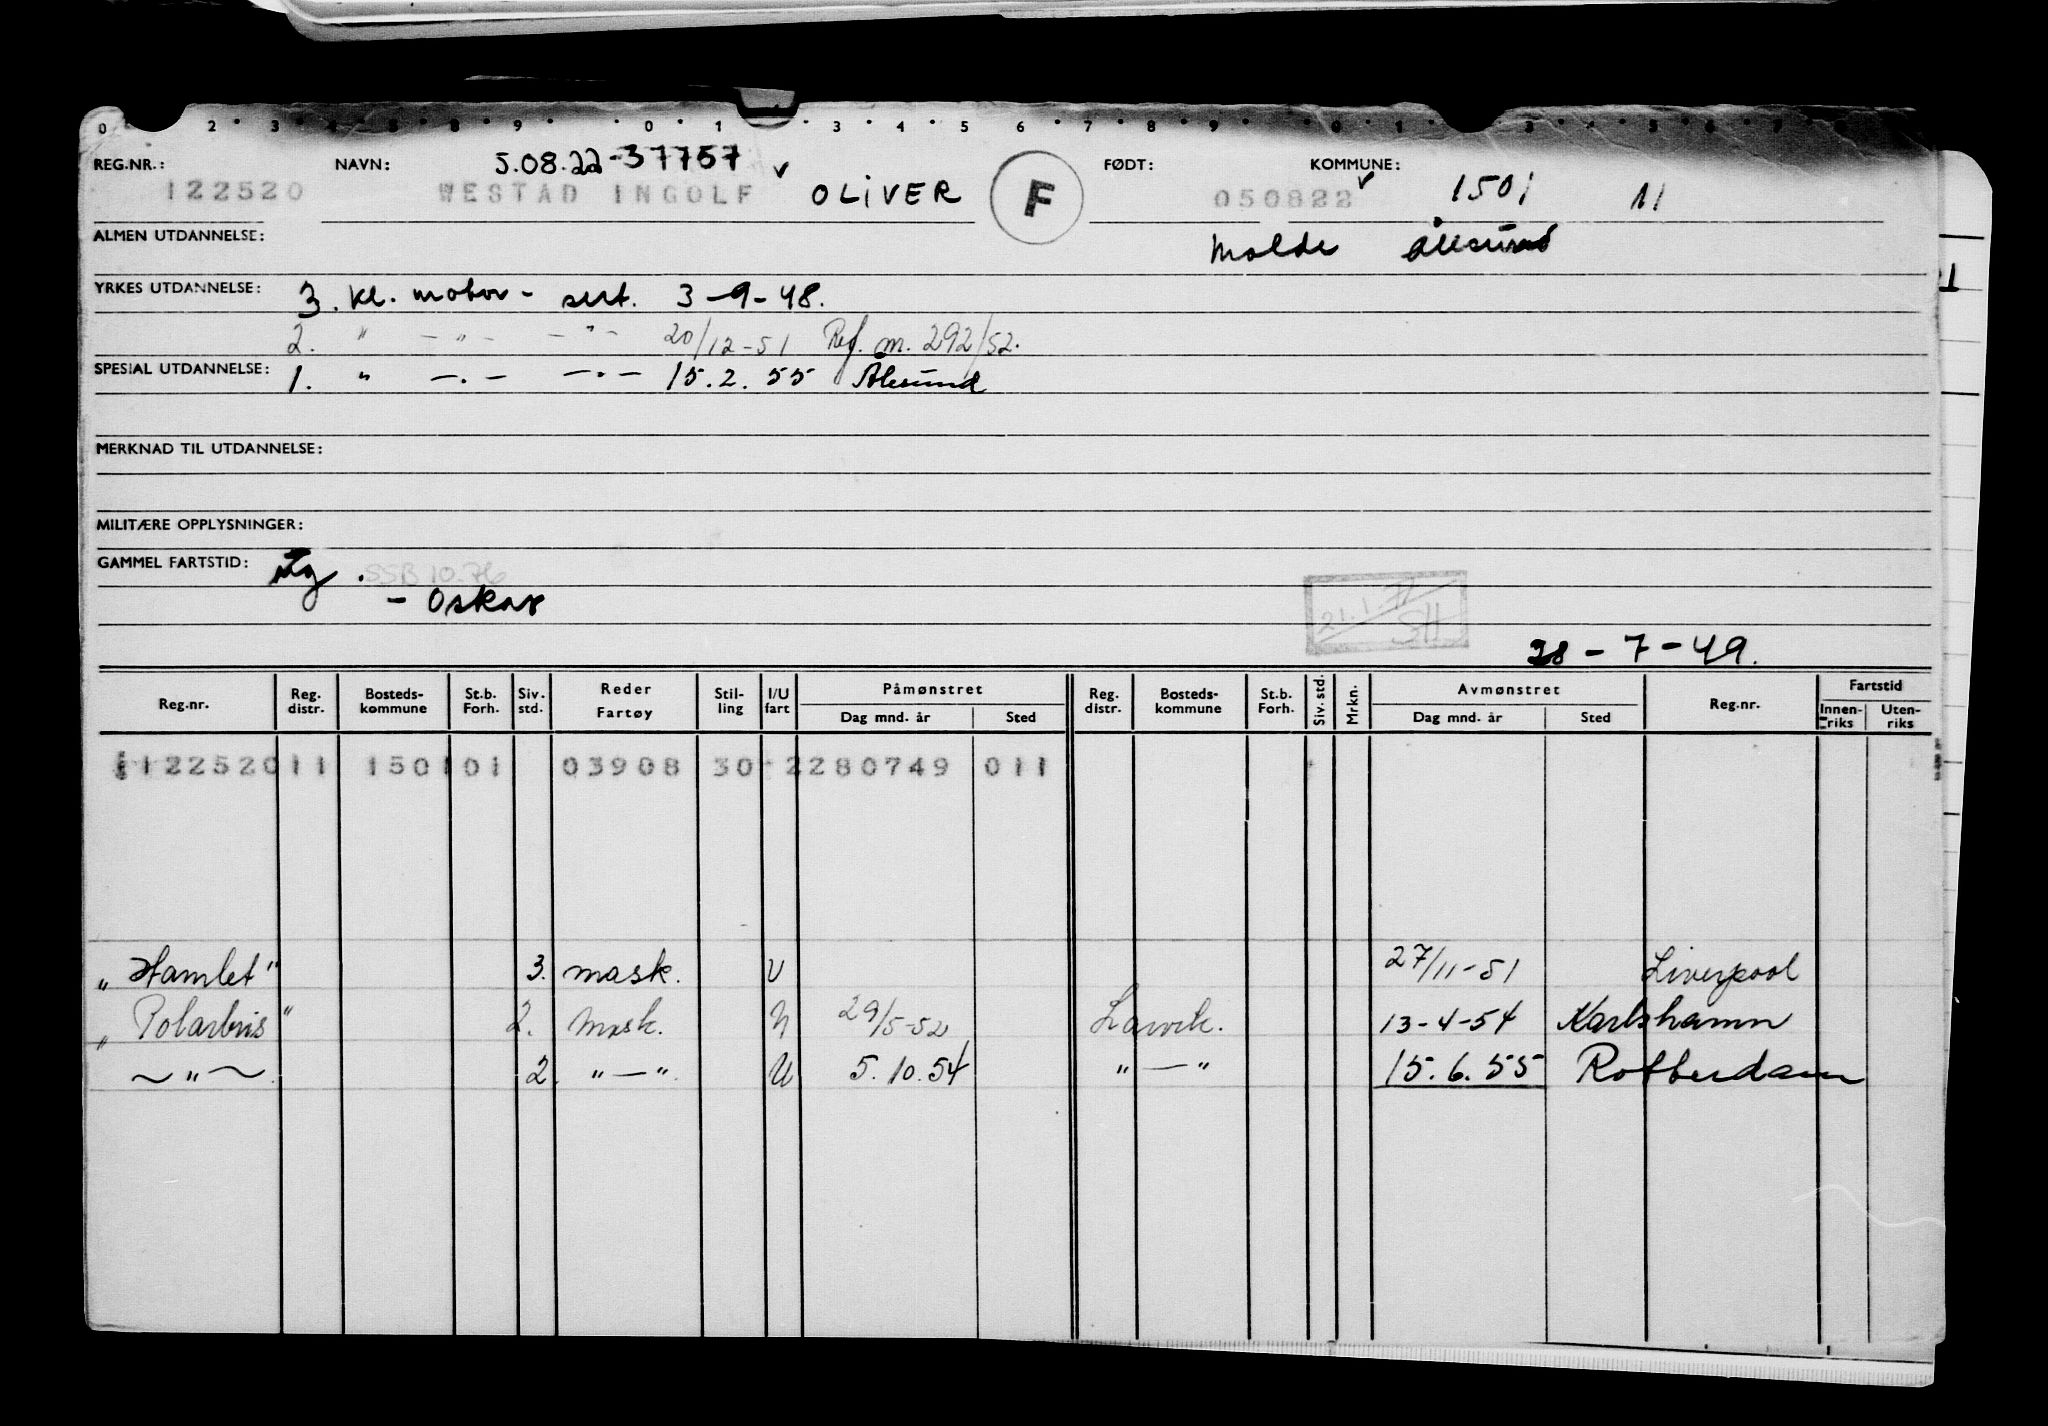 0 2 3 4 5 8 9 0 1 3 4 5 6 7 8 9 0 1 3 5 6 7
REG.NR.: NAVN: 5.08.22-37757 FØDT: KOMMUNE:
122520 WESTAD INGOLF OLIVER F 050822 1501 11
ALMEN UTDANNELSE: Molde Ålesund
YRKES UTDANNELSE: 3. kl. motor- sert. 3-9-48.
2. " - " - - " - 20/12-51 Ref. m. 292/52.
SPESIAL UTDANNELSE: 1. " - . - - . - 15.2.55 Ålesund
MERKNAD TIL UTDANNELSE:
MILITÆRE OPPLYSNINGER:
GAMMEL FARTSTID: SSB 10-76
- Oskar
21.1.77 SH
28-7-49.
Reg.nr. Reg. distr. Bosteds- kommune St.b. Forh. Siv. std. Reder Fartøy Stil- ling I/U fart Påmønstret Dag mnd. år Sted Reg. distr. Bosteds- kommune St.b. Forh. Siv. std. Mrkn. Avmønstret Dag mnd. år Sted Reg.nr. Fartstid Innen- riks Uten- riks
122520 11 1501 01 03908 30 2 280749 011
"Hamlet" 3. mask. U 27/11-51 Liverpool
"Polarbris" 2. Mask. U 29/5-52 Larvik. 13-4-54 Karlshamn
~ " ~ 2. " — " U 5.10.54 " — " 15.6.55 Rotterdam